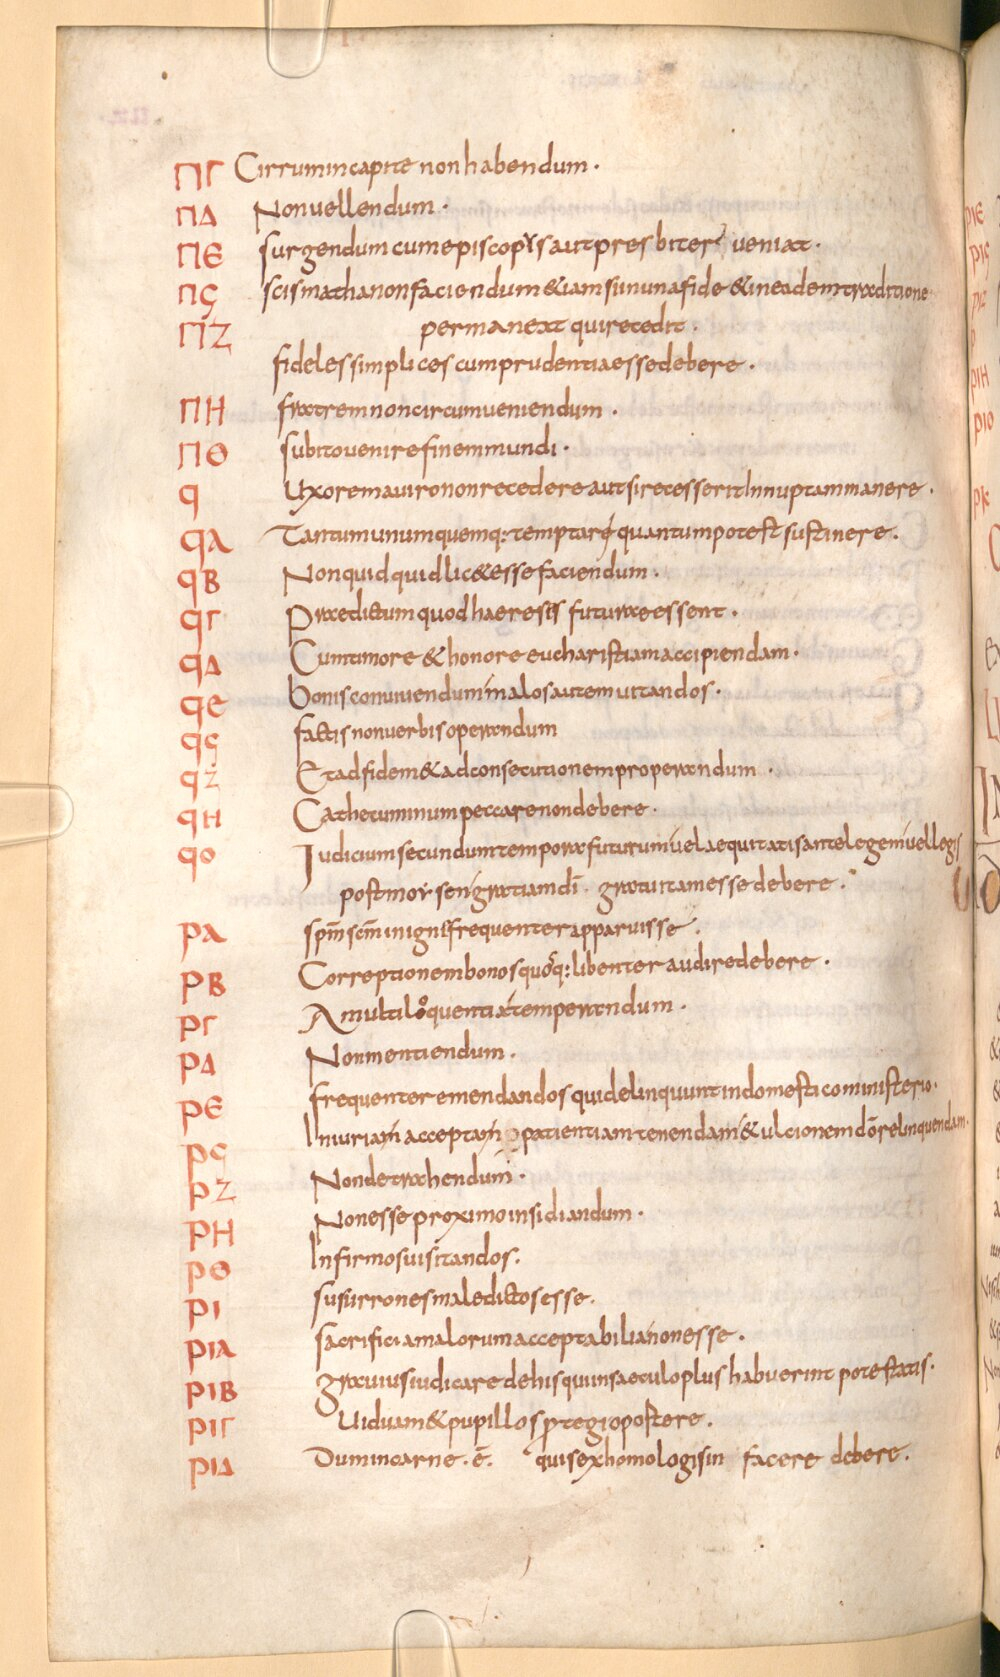 ΠΓ Cirrum in capite non habendum·
ΠΔ Non uellendum·
ΠΕ surgendum cum episcopus aut presbiter ueniat·
ΠϚ scismatha non faciendum &iam si in una fide & in eadem traditione
ΠΖ permaneat qui recedit·
fideles simplices cum prudentia esse debere·
ΠΗ fratrem non circumueniendum·
ΠΘ subito uenire finem mundi·
q Uxorem a uiro non recedere aut si recesserit Innuptam manere·
qΑ Tantum unumquemq: temptari quantum potest sustinere·
qΒ Non quidquid lic& esse faciendum·
qΓ Praedictum quod haeresis futurae essent·
qΔ Cum timore & honore eucharistiam accipiendam·
qΕ bonis conuiuendum malos autem uitandos·
qϚ factis non uerbis operandum
qΖ Et ad fidem & ad consecutionem properandum·
qΗ Cathecuminum peccare non debere·
qΘ Iudicium secundum tempora futurum uel aequitatis ante legem uel legis
post moysen gratiam dī· gratuitam esse debere·
ΡΑ spm scm in ignis frequenter apparuisse·
ΡΒ Correptionem bonos quoq: libenter audire debere·
ΡΓ A multiloquentia temperandum·
ΡΔ Non mentiendum·
ΡΕ frequenter emendandos qui delinquunt in domestico ministerio·
ΡϚ Iniuriam acceptam patientiam tenendam & ulcionem dō relinquendam·
ΡΖ Non detrahendum·
ΡΗ Non esse proximo insidiandum·
ΡΘ Infirmos uisitandos·
ΡΙ susurrones maledictos esse·
ΡΙΑ sacrificia malorum acceptabilia non esse·
ΡΙΒ grauius iudicare de his qui in saeculo plus habuerint potestatis·
ΡΙΓ Uiduam & pupillos protegi opostere·
ΡΙΔ Dum in carne· ē· quis exhomologisin facere debere·
ΡΙΕ
ΡΙϚ
ΡΙΖ
ΡΙΗ
ΡΙΘ
ΡΚ